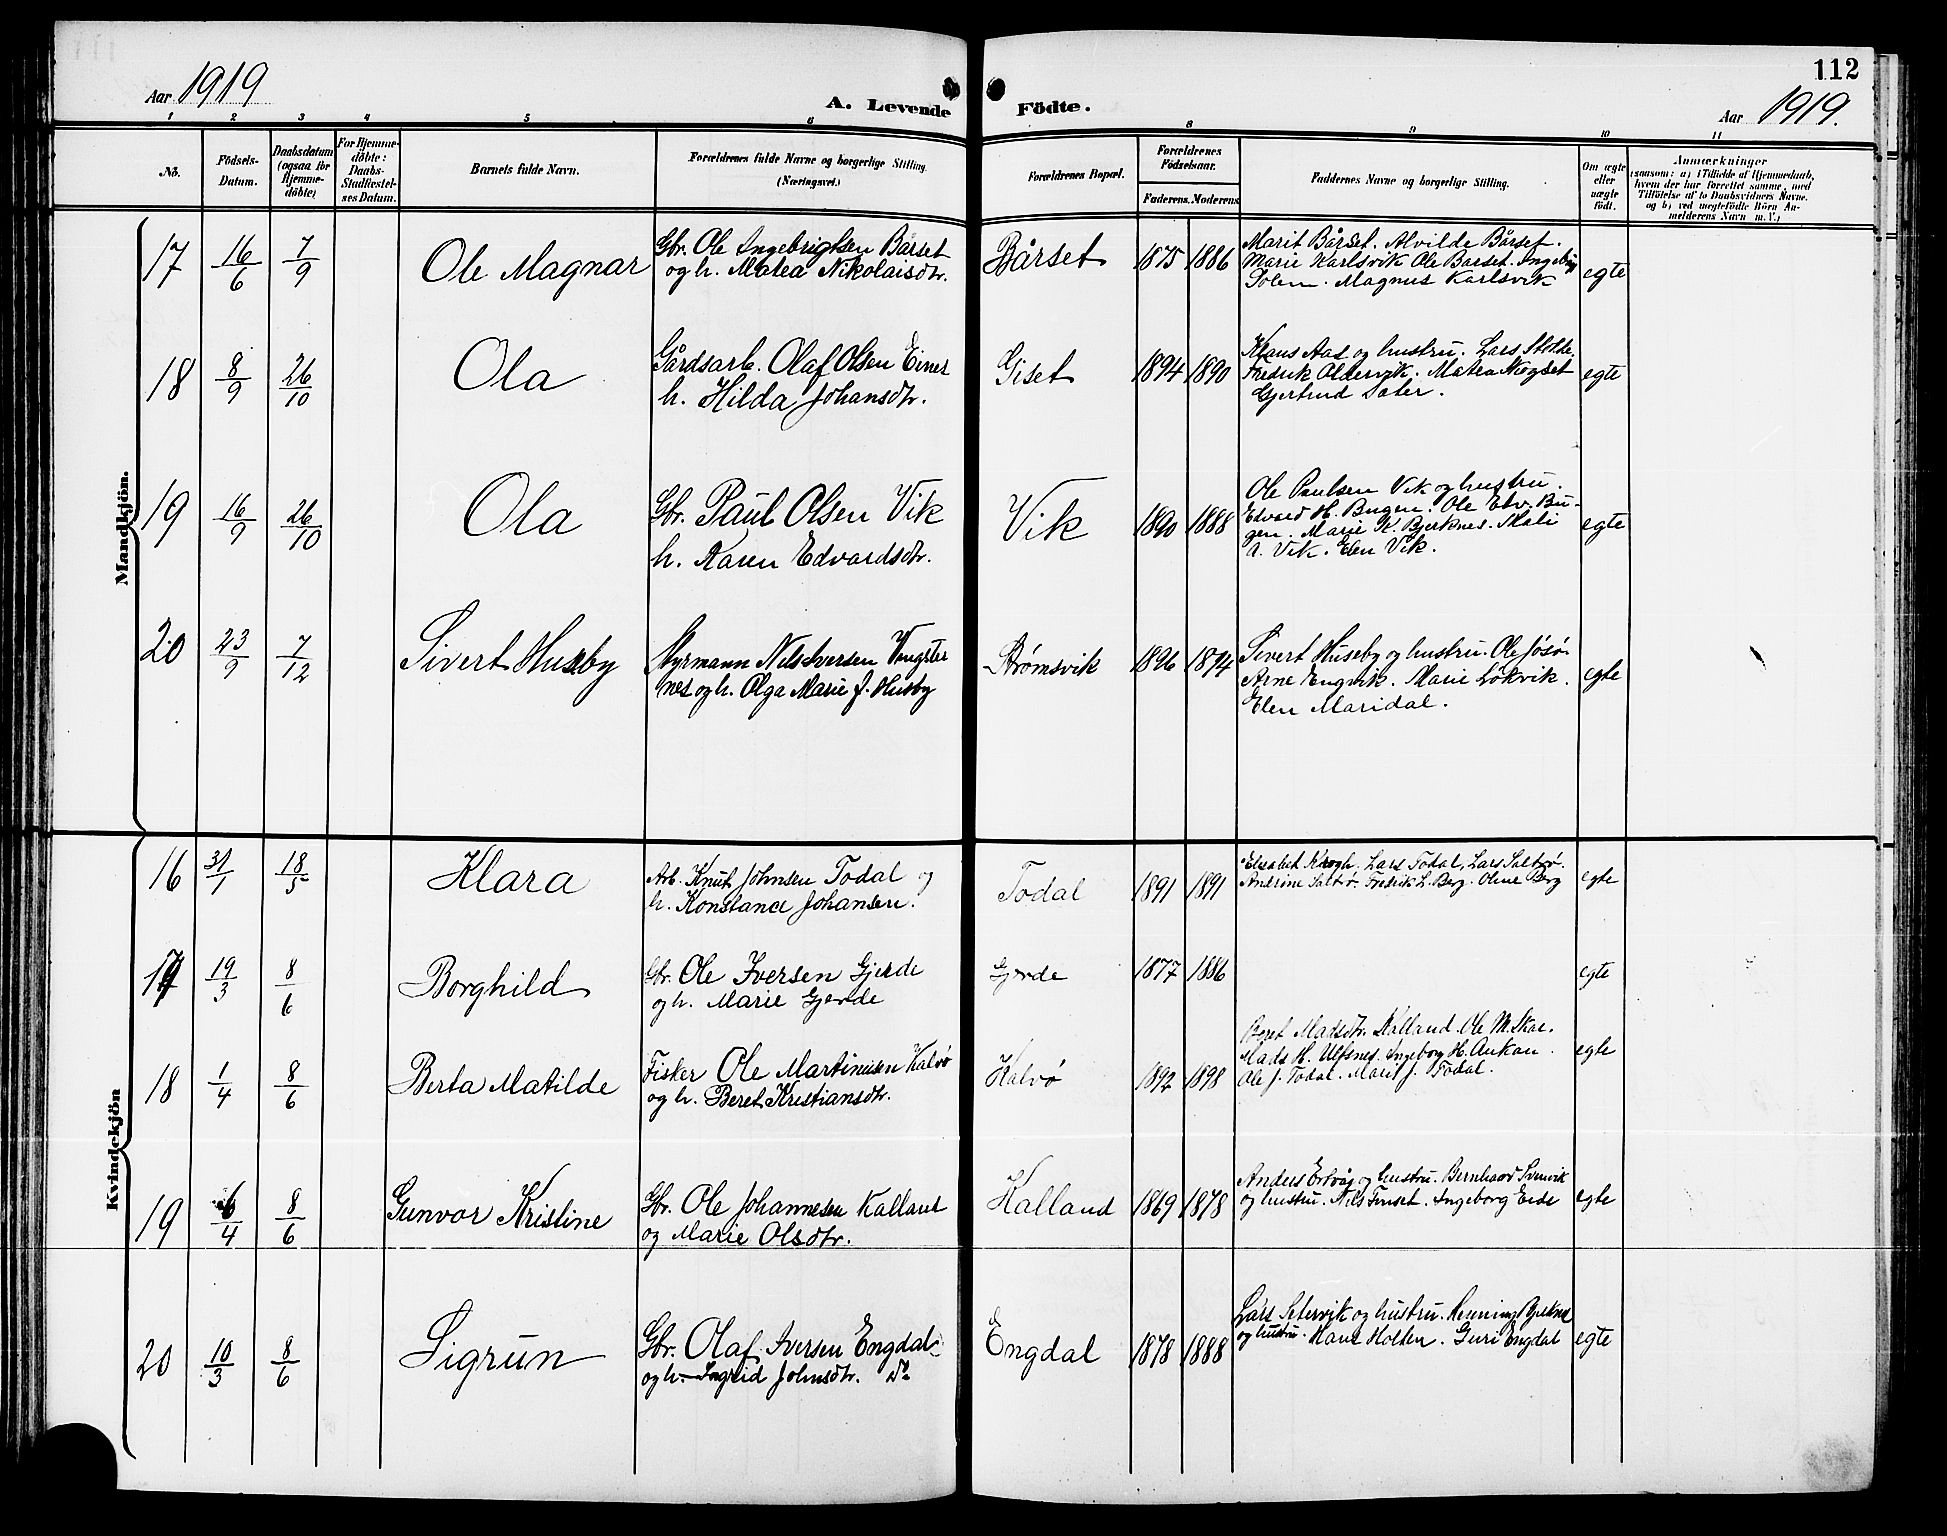 112
Aar 1919
A. Levende Födte.
Aar 1919.
1 2 3 4 5 6 8 9 10 11
No.
Födsels-Datum.
Daabsdatum (ogsaa for Hjemme-döbte)
For Hjemme-döbte: Daabs-Stadfæstel-ses Datum.
Barnets fulde Navn.
Forældrenes fulde Navne og borgerlige Stilling.
(Næringsvei.)
Forældrenes Bopæl.
Forældrenes Födselsaar.
Faderens. Moderens.
Faddernes Navne og borgerlige Stilling.
Om ægte eller uægte födt.
Anmærkninger
(saasom: a) i Tilfælde af Hjemmedaab,
hvem der har forrettet samme, med
Tilföielse af to Daabsvidners Navne.
og b) ved uægtefödte Börn An-
melderens Navn m. V.)
Mandkjön.
17 16/6 7/9 Ole Magnar
Gbr. Ole Ingebrigtsen Bårset
og h. Matea Nikolaisdtr.
Bårset 1875 1886
Marit Bårset. Alvilde Bårset.
Marie Karlsvik Ole Barset. Ingebrig
Solem. Magnus Karlsvik
egte
18 8/9 26/10 Ola
Gårdsarb. Olaf Olsen Einer
h. Hilda Johansdtr.
Giset 1894 1890
Klaus Aas og hustru. Lars
Fredrik Aldervik. Matea
Gjertrud Sater.
egte
19 16/9 26/10 Ola
Gbr. Paul Olsen Vik
h. Karen Edvardsdtr.
Vik 1890 1888
Ole Paulsen Vik og hustru.
Edvard H. Bugen. Ole Edv. Bu-
gen. Marie K. Bjerknes. Mali
A. Vik. Elen Vik.
egte
20 23/9 7/12 Sivert Husby
Myrmann Nils Iversen Vengster
nes og h. Olga Marie J. Husby
Strømsvik 1896 1894
Sivert Huseby og hustru. Ole Jøsø.
Arne Engvik. Marie Løkvik.
Elen Maridal.
egte
Kvindekjön
16 31/1 18/5 Klara
Arb. Knut Johnsen Todal og
h. Konstance Johansen.
Todal 1891 1891
Elisabet Krogh. Lars Todal, Lars Saltrø.
Andrine Saltrø. Fredrik L. Berg. Oline Berg
egte
17 19/3 8/6 Borghild
Gbr. Ole Iversen Gjerde
og h. Marie Gjerde
Gjerde 1877 1886
egte
18 1/4 8/6 Berta Matilde
Fisker Ole Martinusen Kalvø
og h. Beret Kristiansdtr.
Kalvø 1892 1898
Beret Madsdtr. Kalland. Ole M. Skar.
Mads H. Ulfsnes. Ingeborg H. Aukan.
Ole J. Todal. Marit J. Todal.
egte
19 6/4 8/6 Gunvor Kristine
Gbr. Ole Johannesen Kalland
og Marie Olsdtr.
Kalland 1869 1878
Anders Ertvåg og hustru. Bernhaard Svinvik
og hustru. Nils Finset. Ingeborg Eide
egte
20 10/3 8/6 Sigrun
Gbr. Olaf Iversen Engdal
og h. Ingrid Johnsdtr. do
Engdal 1878 1888
Lars Setervik og hustru. Henning Bjerknes
og hustru. Hans Holten. Guri Engdal
egte